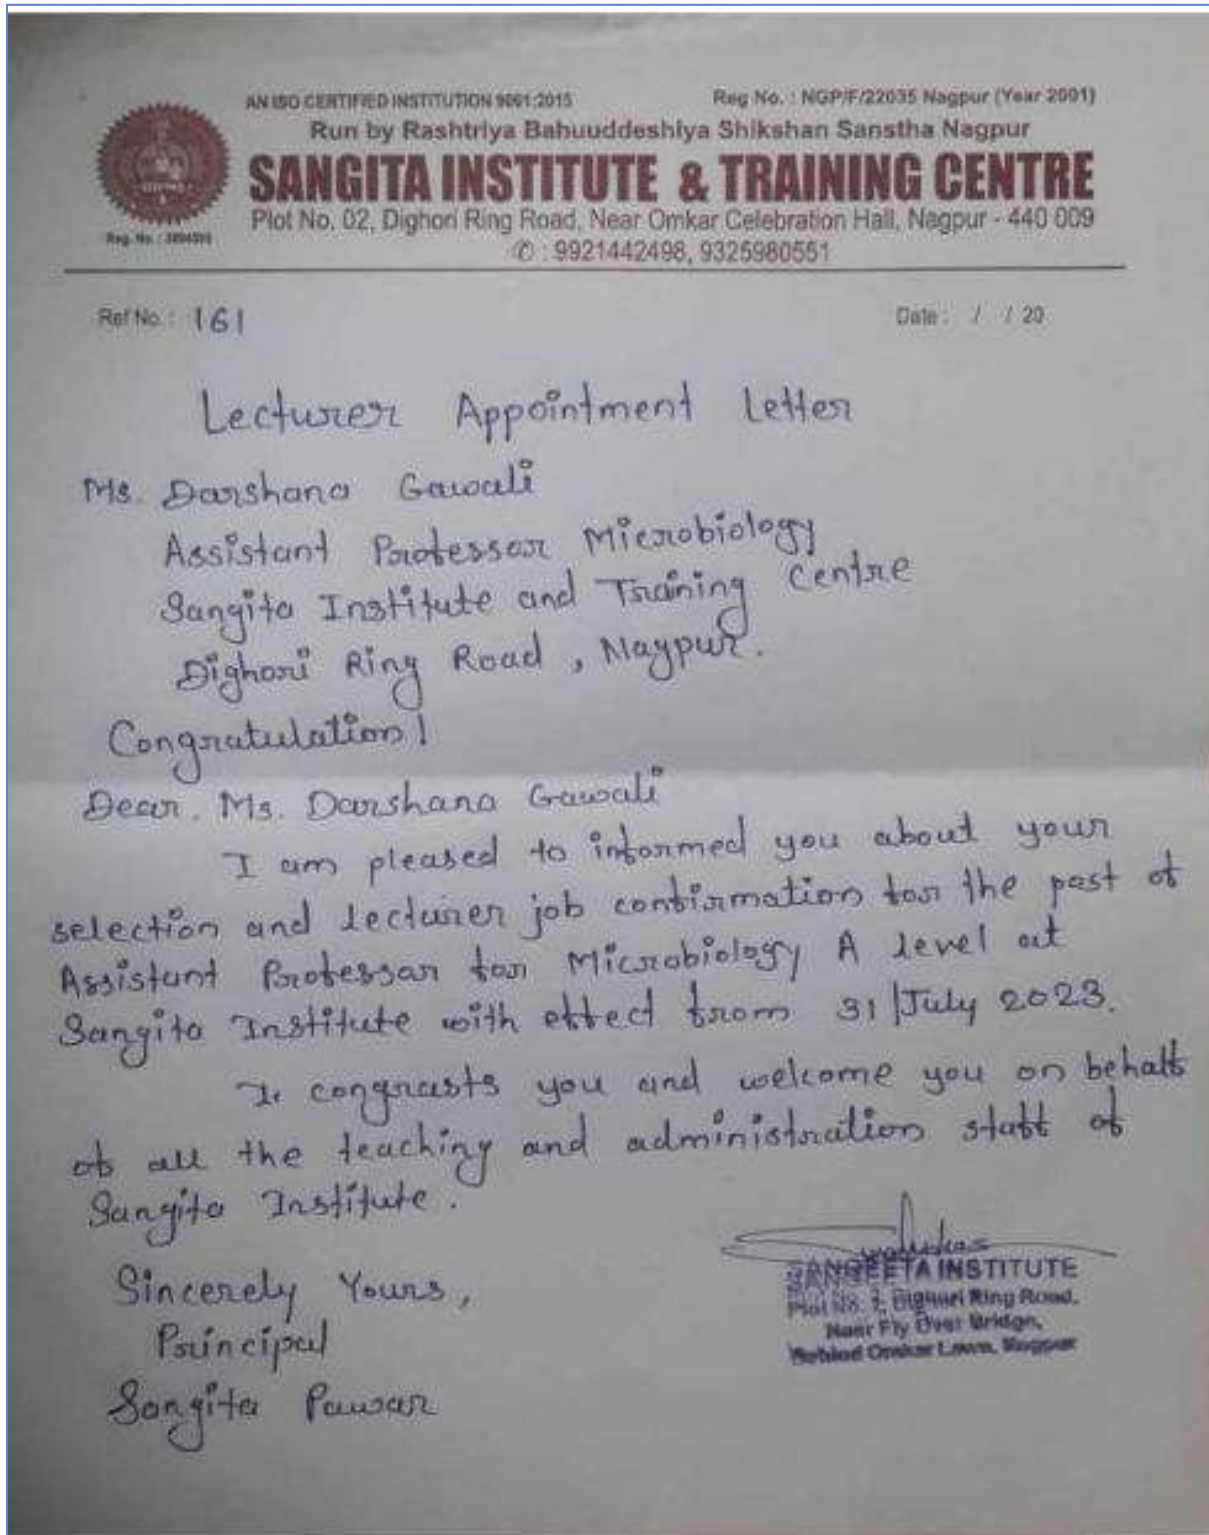 AN ISO CERTIFIED INSTITUTION 9001:2015 Reg No. : NGP/F/22035 Nagpur (Year 2001)
Run by Rashtriya Bahuuddeshiya Shikshan Sanstha Nagpur
SANGITA INSTITUTE & TRAINING CENTRE
Plot No, 02, Dighori Ring Road, Near Omkar Celebration Hall, Nagpur - 440 009
✆ : 9921442498, 9325980551
Reg. No. :
Ref No. : 161 Date : / / 20
Lecturer Appointment Letter
Ms. Darshana Gawali
Assistant Professor Microbiology
Sangita Institute and Training Centre
Dighori Ring Road , Nagpur.
Congratulation !
Dear. Ms. Darshana Gawali
I am pleased to informed you about your
selection and lecturer job confirmation for the post of
Assistant Professor for Microbiology A level at
Sangita Institute with effect from 31 | July 2023.
It congrasts you and welcome you on behalf
of all the teaching and administration staff of
Sangita Institute .
Sincerely Yours ,
Principal
Sangita Pawar
SANGEETA INSTITUTE
Plot No. 2, Dighori Ring Road,
Near Fly Over Bridge,
Behind Omkar Lawn, Nagpur